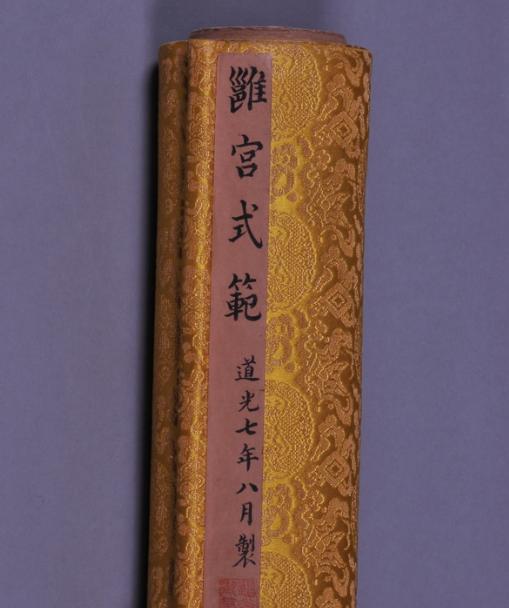 雝宮式範
道光七年八月製